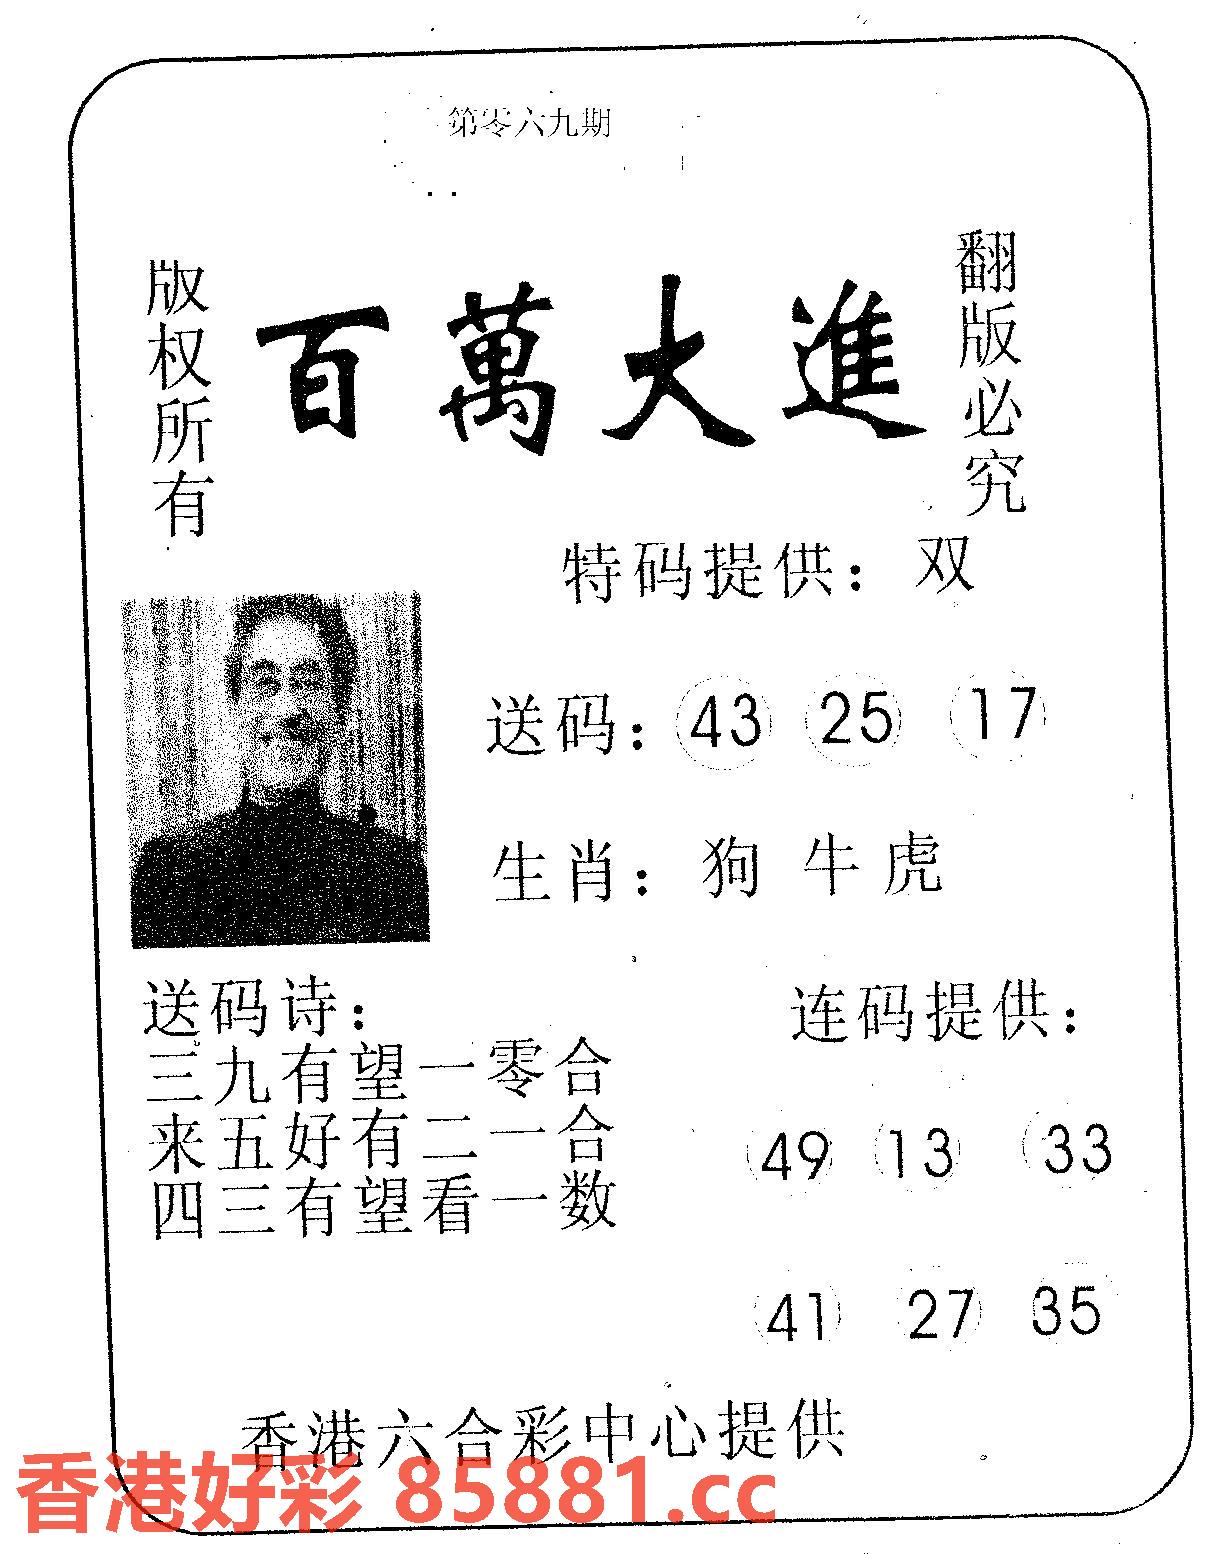 第零六九期
版权所有
百萬大進
翻版必究
特码提供：双
送码：43 25 17
生肖：狗 牛 虎
送码诗：
三九有望一零合
来五好有二一合
四三有望看一数
连码提供：
49 13 33
41 27 35
香港六合彩中心提供
香港好彩 85881.cc